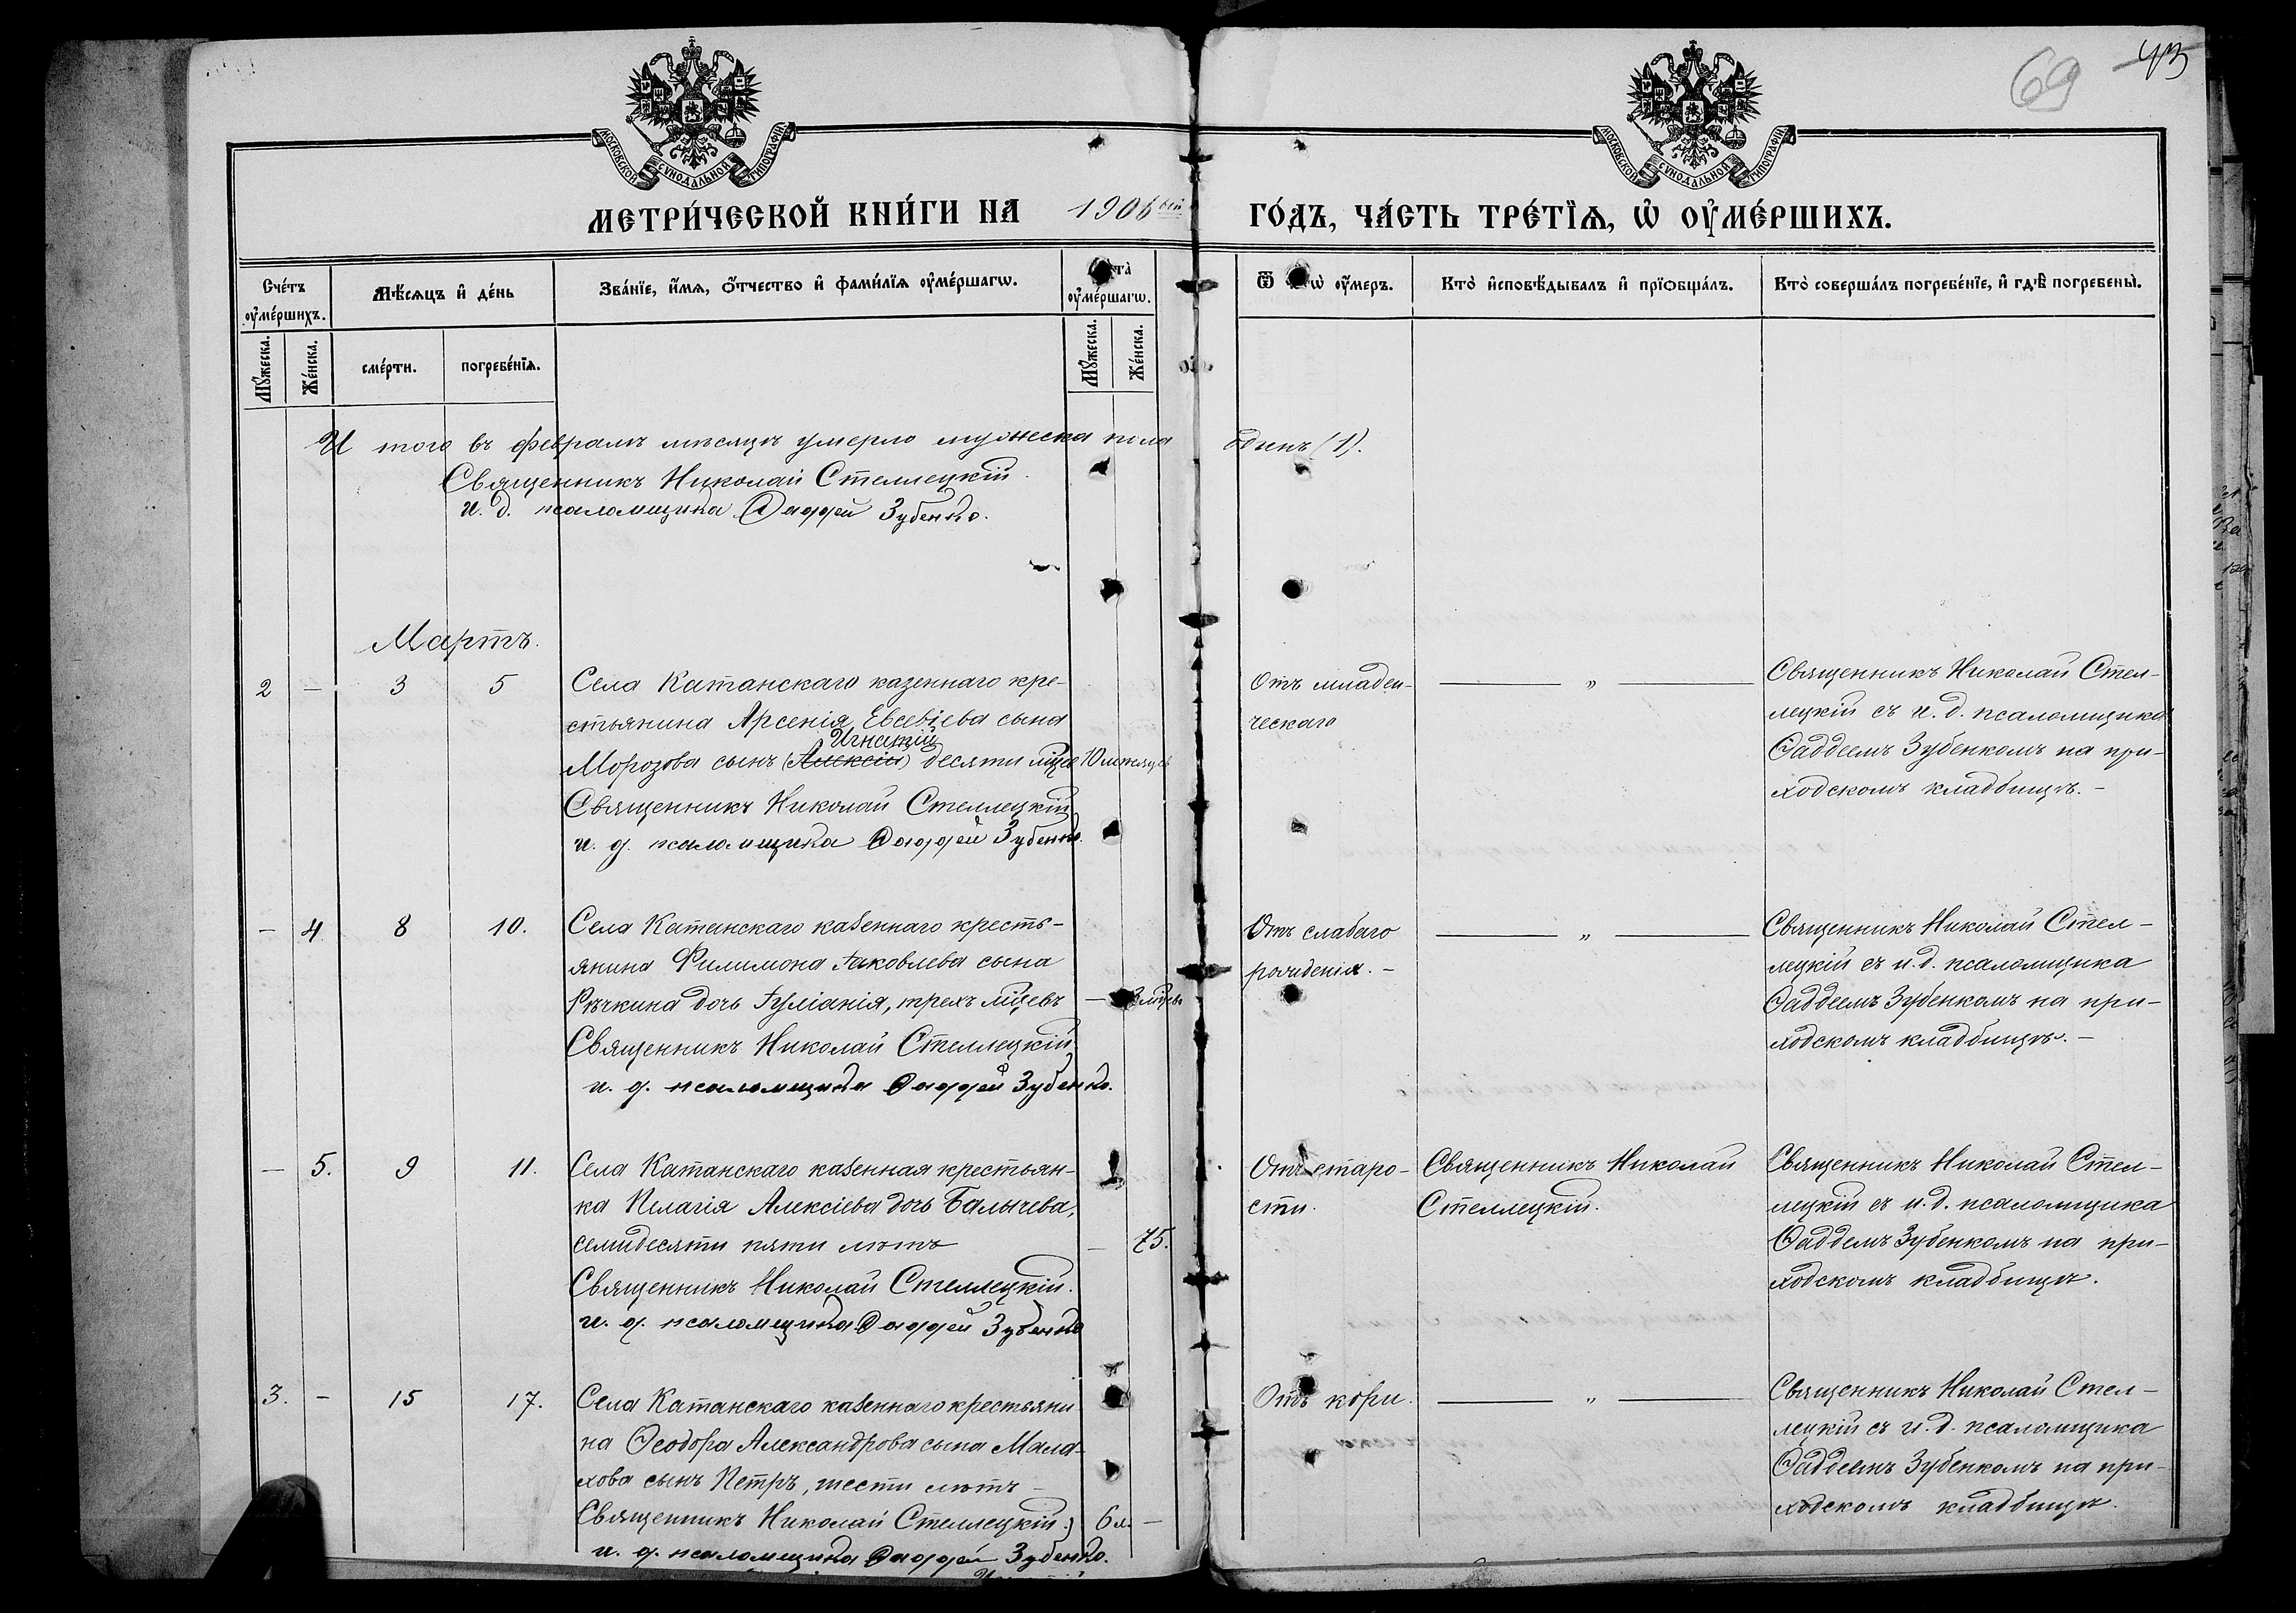 69
43
МОСКОВСКОЙ СѴНОДАЛЬНОЙ ТИПОГРАФІИ
МОСКОВСКОЙ СѴНОДАЛЬНОЙ ТИПОГРАФІИ
МЕТРИ́ЧЕСКОЙ КНИ́ГИ НА 1906 ГО́ДЪ, ЧА́СТЬ ТРЕ́ТЇѦ, Ѡ҆ ОУ҆МЕ́РШИХЪ.
Сче́тъ оу҆ме́ршихъ.
Мѣ́сѧцъ и҆ де́нь
Зва́нїе, и҆́мѧ, ѻ҆́тчество и҆ фами́лїѧ оу҆ме́ршагѡ.
оу҆ме́ршагѡ.
оу҆́меръ.
Кто̀ и҆сповѣ́дывалъ и҆ прїѡбща́лъ.
Кто̀ соверша́лъ погребе́нїе, и҆ гдѣ̀ погребены̀.
Мꙋ́жеска.
Же́нска.
сме́рти.
погребе́нїѧ.
Мꙋ́жеска.
Же́нска.
И того въ февралѣ мѣсяцѣ умерло мужеска пола одинъ (1).
Священникъ Николай Стеллецкій.
и. д. псаломщика Ѳаддей Зубенко.
Мартъ.
2 – 3 5
Села Катанскаго казеннаго кре-
стьянина Арсенія Евсевіева сына
Игнатій
Морозова сынъ (Алексій) десяти мцев 10 мѣсяцевъ
Священникъ Николай Стеллецкій
и. д. псаломщика Ѳаддей Зубенко.
Отъ младен-
ческаго
— „ —
Священникъ Николай Стел-
лецкій съ и. д. псаломщика
Ѳаддеемъ Зубенкомъ на при-
ходскомъ кладбищѣ. –
– 4 8 10.
Села Катанскаго казеннаго кресть-
янина Филимона Іаковлева сына
Рѣчкина дочь Іуліанія, трехъ мцевъ – 3 мцевъ
Священникъ Николай Стеллецкій
и. д. псаломщика Ѳаддей Зубенко.
Отъ слабаго
рожденія. –
— „ —
Священникъ Николай Стел-
лецкій съ и. д. псаломщика
Ѳаддеемъ Зубенкомъ на при-
ходскомъ кладбищѣ. –
– 5. 9 11.
Села Катанскаго казенная крестьян-
ка Пелагія Алексіева дочь Балычева,
семидесяти пяти лѣтъ – 75.
Священникъ Николай Стеллецкій.
и. д. псаломщика Ѳаддей Зубенко
Отъ старо-
сти.
Священникъ Николай
Стеллецкій.
Священникъ Николай Стел-
лецкій съ и. д. псаломщика
Ѳаддеемъ Зубенкомъ на при-
ходскомъ кладбищѣ.
3. – 15 17.
Села Катанскаго казеннаго крестьяни
на Ѳеодора Александрова сына Мала-
хова сынъ Петръ, шести лѣтъ –
Священникъ Николай Стеллецкій. 6 л. –
и. д. псаломщика Ѳаддей Зубенко.
Отъ кори.
— „ —
Священникъ Николай Стел-
лецкій съ и. д. псаломщика
Ѳаддеемъ Зубенкомъ на при-
ходскомъ кладбищѣ.